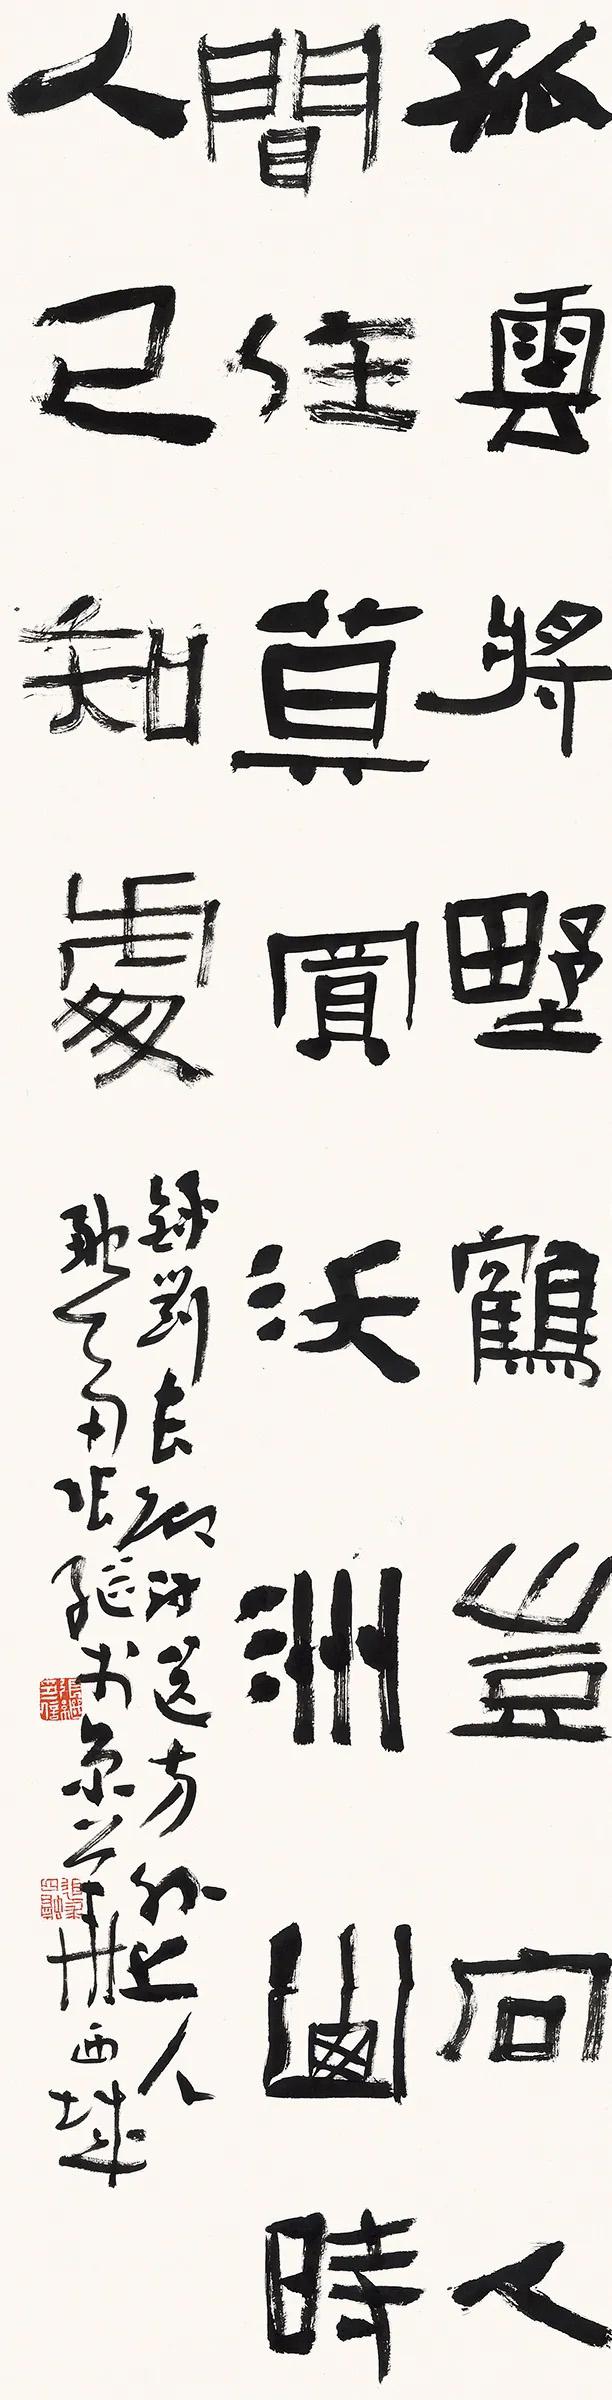 孤雲將野鶴豈向人
間住莫買沃洲山時
人已知處
錄劉長卿詩送方外上人
張繼书京華西城